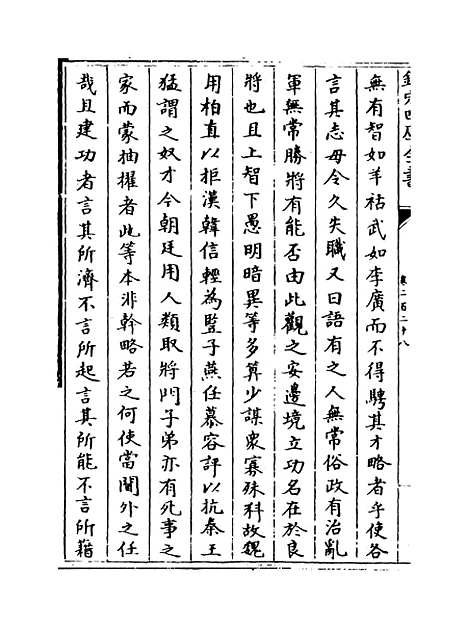 欽定四庫全書
卷二百二十八
無有智如羊祜武如李廣而不得騁其才略者乎使各
言其志毋令久失職又曰語有之人無常俗政有治亂
軍無常勝將有能否由此觀之安邊境立功名在於良
將也且上智下愚明暗異等多算少謀衆寡殊科故魏
用柏直以拒漢韓信輕為豎子燕任慕容評以抗秦王
猛謂之奴才今朝廷用人類取將門子弟亦有死事之
家而蒙抽擢者此等本非幹略若之何使當閫外之任
哉且建功者言其所濟不言所起言其所能不言所藉